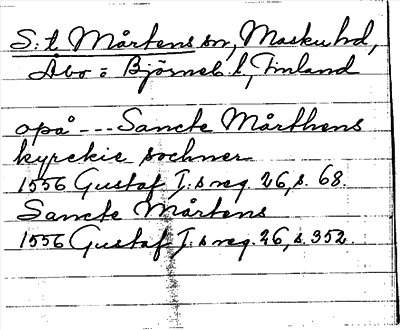 S:t Mårtens sn, Masku hd,
Åbo = Björneb. l, Finland
opå --- Sancte Mårthens
kyrckie sochnen
1556 Gustaf I:s reg. 26, s. 68.
Sancte Mårtens
1556 Gustaf I:s reg. 26, s. 352.